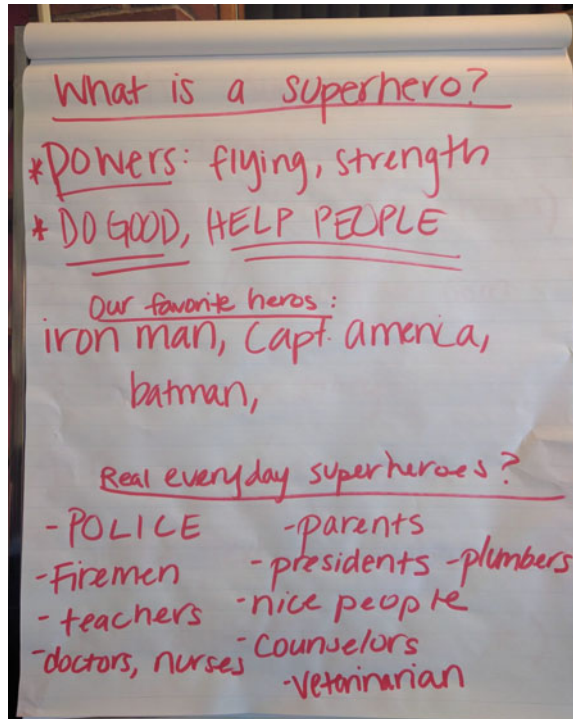 What is a superhero?
* Powers: flying, strength
* DO GOOD, HELP PEOPLE
Our favorite heros:
iron man, Capt. america,
batman,
Real everyday superheroes?
- POLICE
- Firemen
- teachers
- doctors, nurses
- parents
- presidents - plumbers
- nice people
- Counselors
- vetarinarian